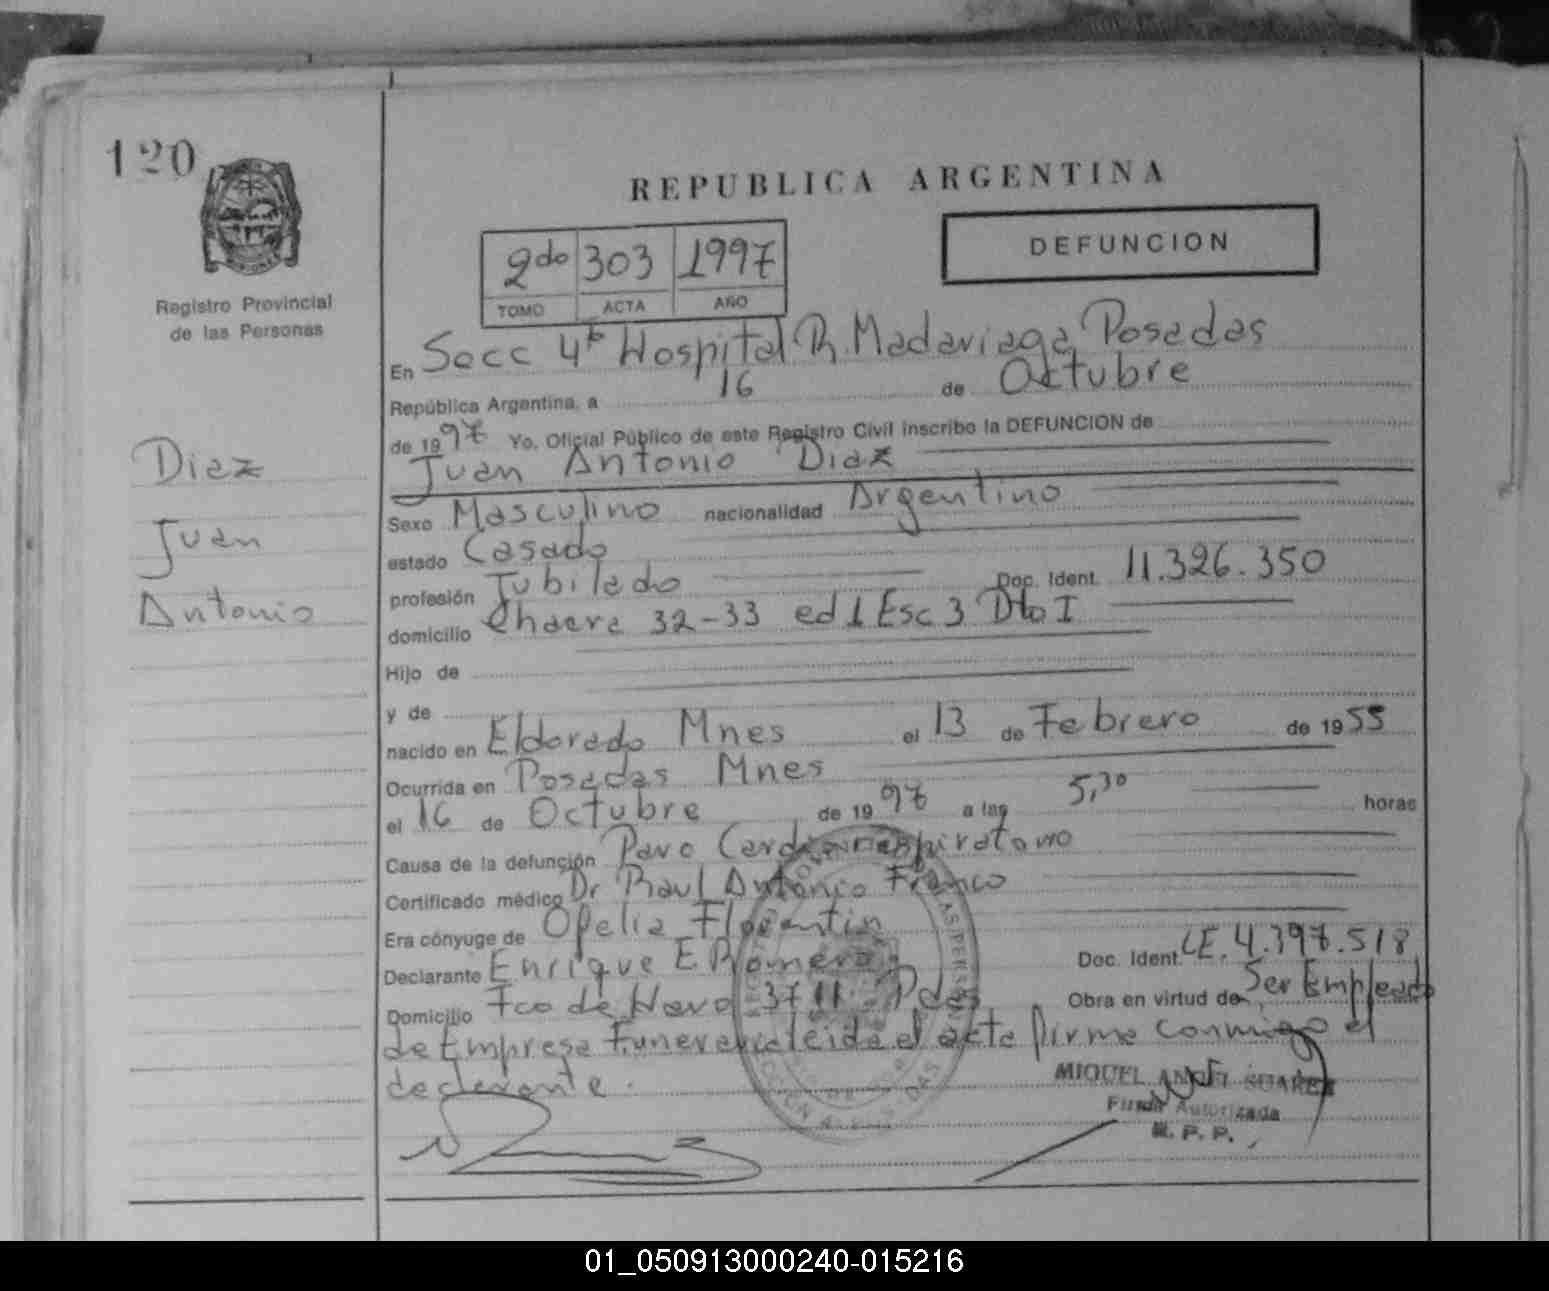 120
REPUBLICA ARGENTINA
DEFUNCION
2do 303 1997
TOMO ACTA AÑO
Registro Provincial
de las Personas
En Secc 4ta Hospital R. Madariaga Posadas
República Argentina, a 16 de Octubre
de 1997 Yo, Oficial Público de este Registro Civil inscribo la DEFUNCION de
Juan Antonio Diaz
Diaz
Juan
Antonio
Sexo Masculino nacionalidad Argentino
estado Casado
profesión Jubilado Doc. Ident. 11.326.350
domicilio Chacra 32-33 ed 1 Esc 3 Dto I
Hijo de
y de
nacido en Eldorado Mnes el 13 de Febrero de 1955
Ocurrida en Posadas Mnes
el 16 de Octubre de 1997 a las 5,30 horas
Causa de la defunción Paro Cardiorrespiratorio
Certificado médico Dr Raul Antonio Franco
Era cónyuge de Ofelia Florentin
Declarante Enrique E. Romero Doc. Ident. LE. 4.397.518
Domicilio Fco de Haro 3711 Pdas Obra en virtud de Ser Empleado
de Empresa Funeraria leida el acta firma conmigo el
declarante.
MIGUEL ANGEL SUAREZ
Firma Autorizada
R. P. P.
01_050913000240-015216